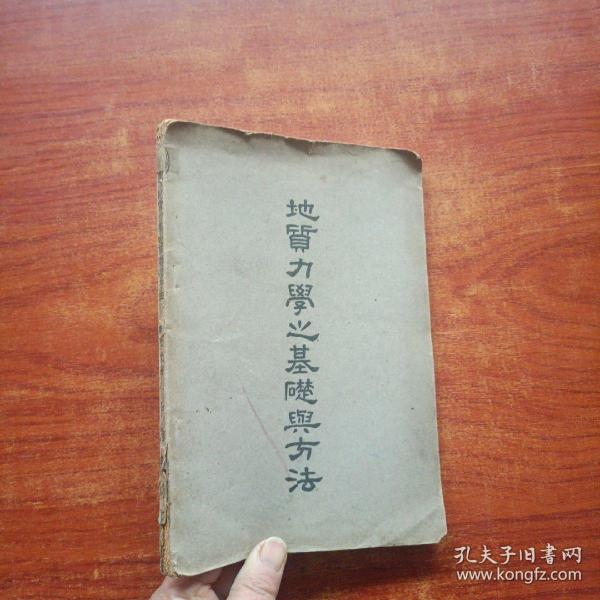 地質力學之基礎與方法
孔夫子旧書网
www.kongfz.com